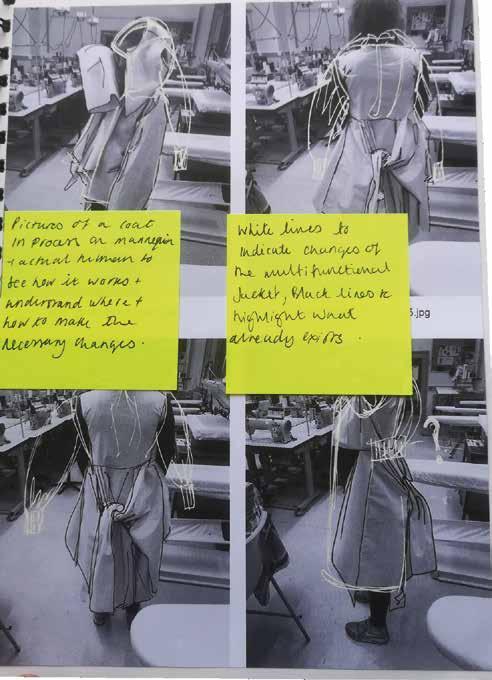 Pictures of a coat
in process on mannequin
+ actual human to
see how it works +
understand where +
how to make the
necessary changes.
White lines to
indicate changes of
the multifunctional
Jacket, Black lines to
highlight what
already exists.
5.jpg
?